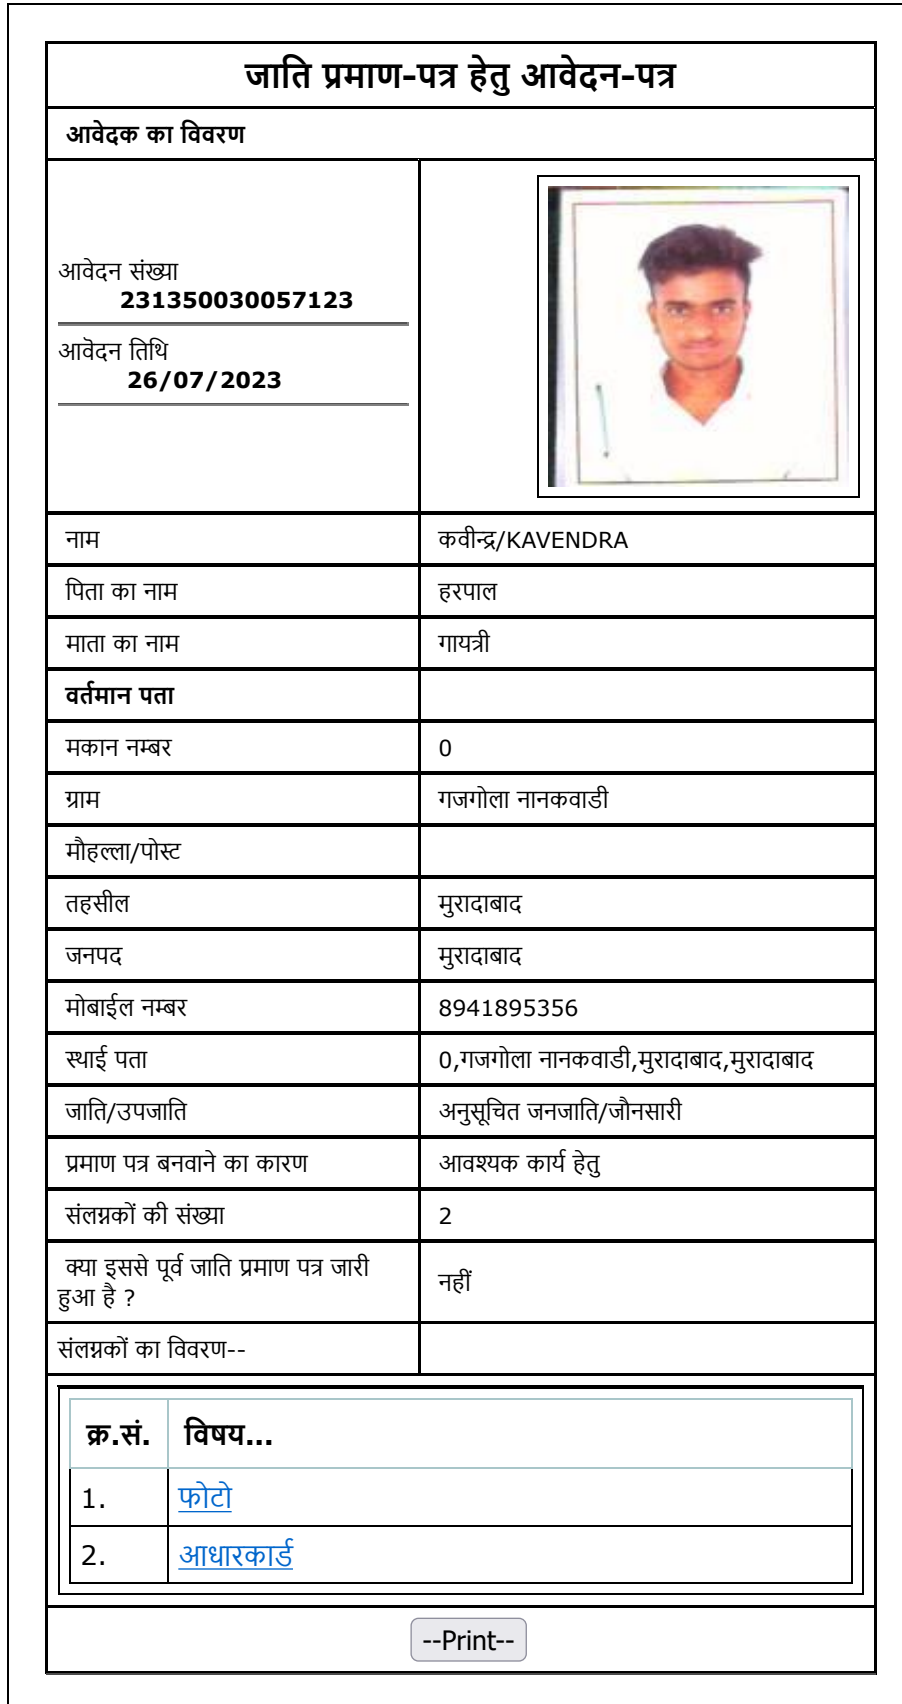 जाति प्रमाण-पत्र हेतु आवेदन-पत्र
आवेदक का विवरण
आवेदन संख्या
231350030057123
आवेदन तिथि
26/07/2023
नाम कवीन्द्र/KAVENDRA
पिता का नाम हरपाल
माता का नाम गायत्री
वर्तमान पता
मकान नम्बर 0
ग्राम गजगोला नानकवाडी
मौहल्ला/पोस्ट
तहसील मुरादाबाद
जनपद मुरादाबाद
मोबाईल नम्बर 8941895356
स्थाई पता 0,गजगोला नानकवाडी,मुरादाबाद,मुरादाबाद
जाति/उपजाति अनुसूचित जनजाति/जौनसारी
प्रमाण पत्र बनवाने का कारण आवश्यक कार्य हेतु
संलग्नकों की संख्या 2
क्या इससे पूर्व जाति प्रमाण पत्र जारी
हुआ है ? नहीं
संलग्नकों का विवरण--
क्र.सं. विषय...
1. फोटो
2. आधारकार्ड
--Print--